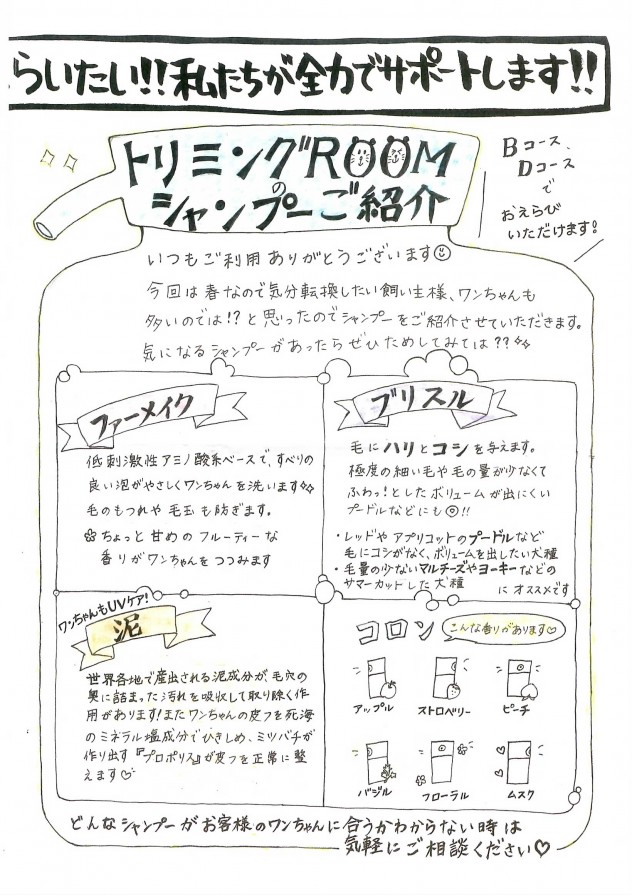 らいたい!!私たちが全力でサポートします!!
トリミングROOM
の
シャンプーご紹介
Bコース、
Dコース
で
おえらび
いただけます!
いつもご利用ありがとうございます
今回は春なので気分転換したい飼い主様、ワンちゃんも
多いのでは!?と思ったのでシャンプーをご紹介させていただきます。
気になるシャンプーがあったらぜひためしてみては??
ファーメイク
低刺激性アミノ酸系ベースで、すべりの
良い泡がやさしくワンちゃんを洗います
毛のもつれや毛玉も防ぎます。
ちょっと甘めのフルーティーな
香りがワンちゃんをつつみます
ブリスル
毛にハリとコシを与えます。
極度の細い毛や毛の量が少なくて
ふわっ!としたボリュームが出にくい
プードルなどにも◎!!
・レッドやアプリコットのプードルなど
毛にコシがなく、ボリュームを出したい犬種
・毛量の少ないマルチーズやヨーキーなどの
サマーカットした犬種
にオススメです
ワンちゃんもUVケア!
泥
世界各地で産出される泥成分が毛穴の
奥に詰まった汚れを吸収して取り除く作
用があります!またワンちゃんの皮フを死海
のミネラル塩成分でひきしめ、ミツバチが
作り出す『プロポリス』が皮フを正常に整
えます♡
コロン
こんな香りがあります♡
アップル
ストロベリー
ピーチ
バジル
フローラル
ムスク
どんなシャンプーがお客様のワンちゃんに合うかわからない時は
気軽にご相談ください♡